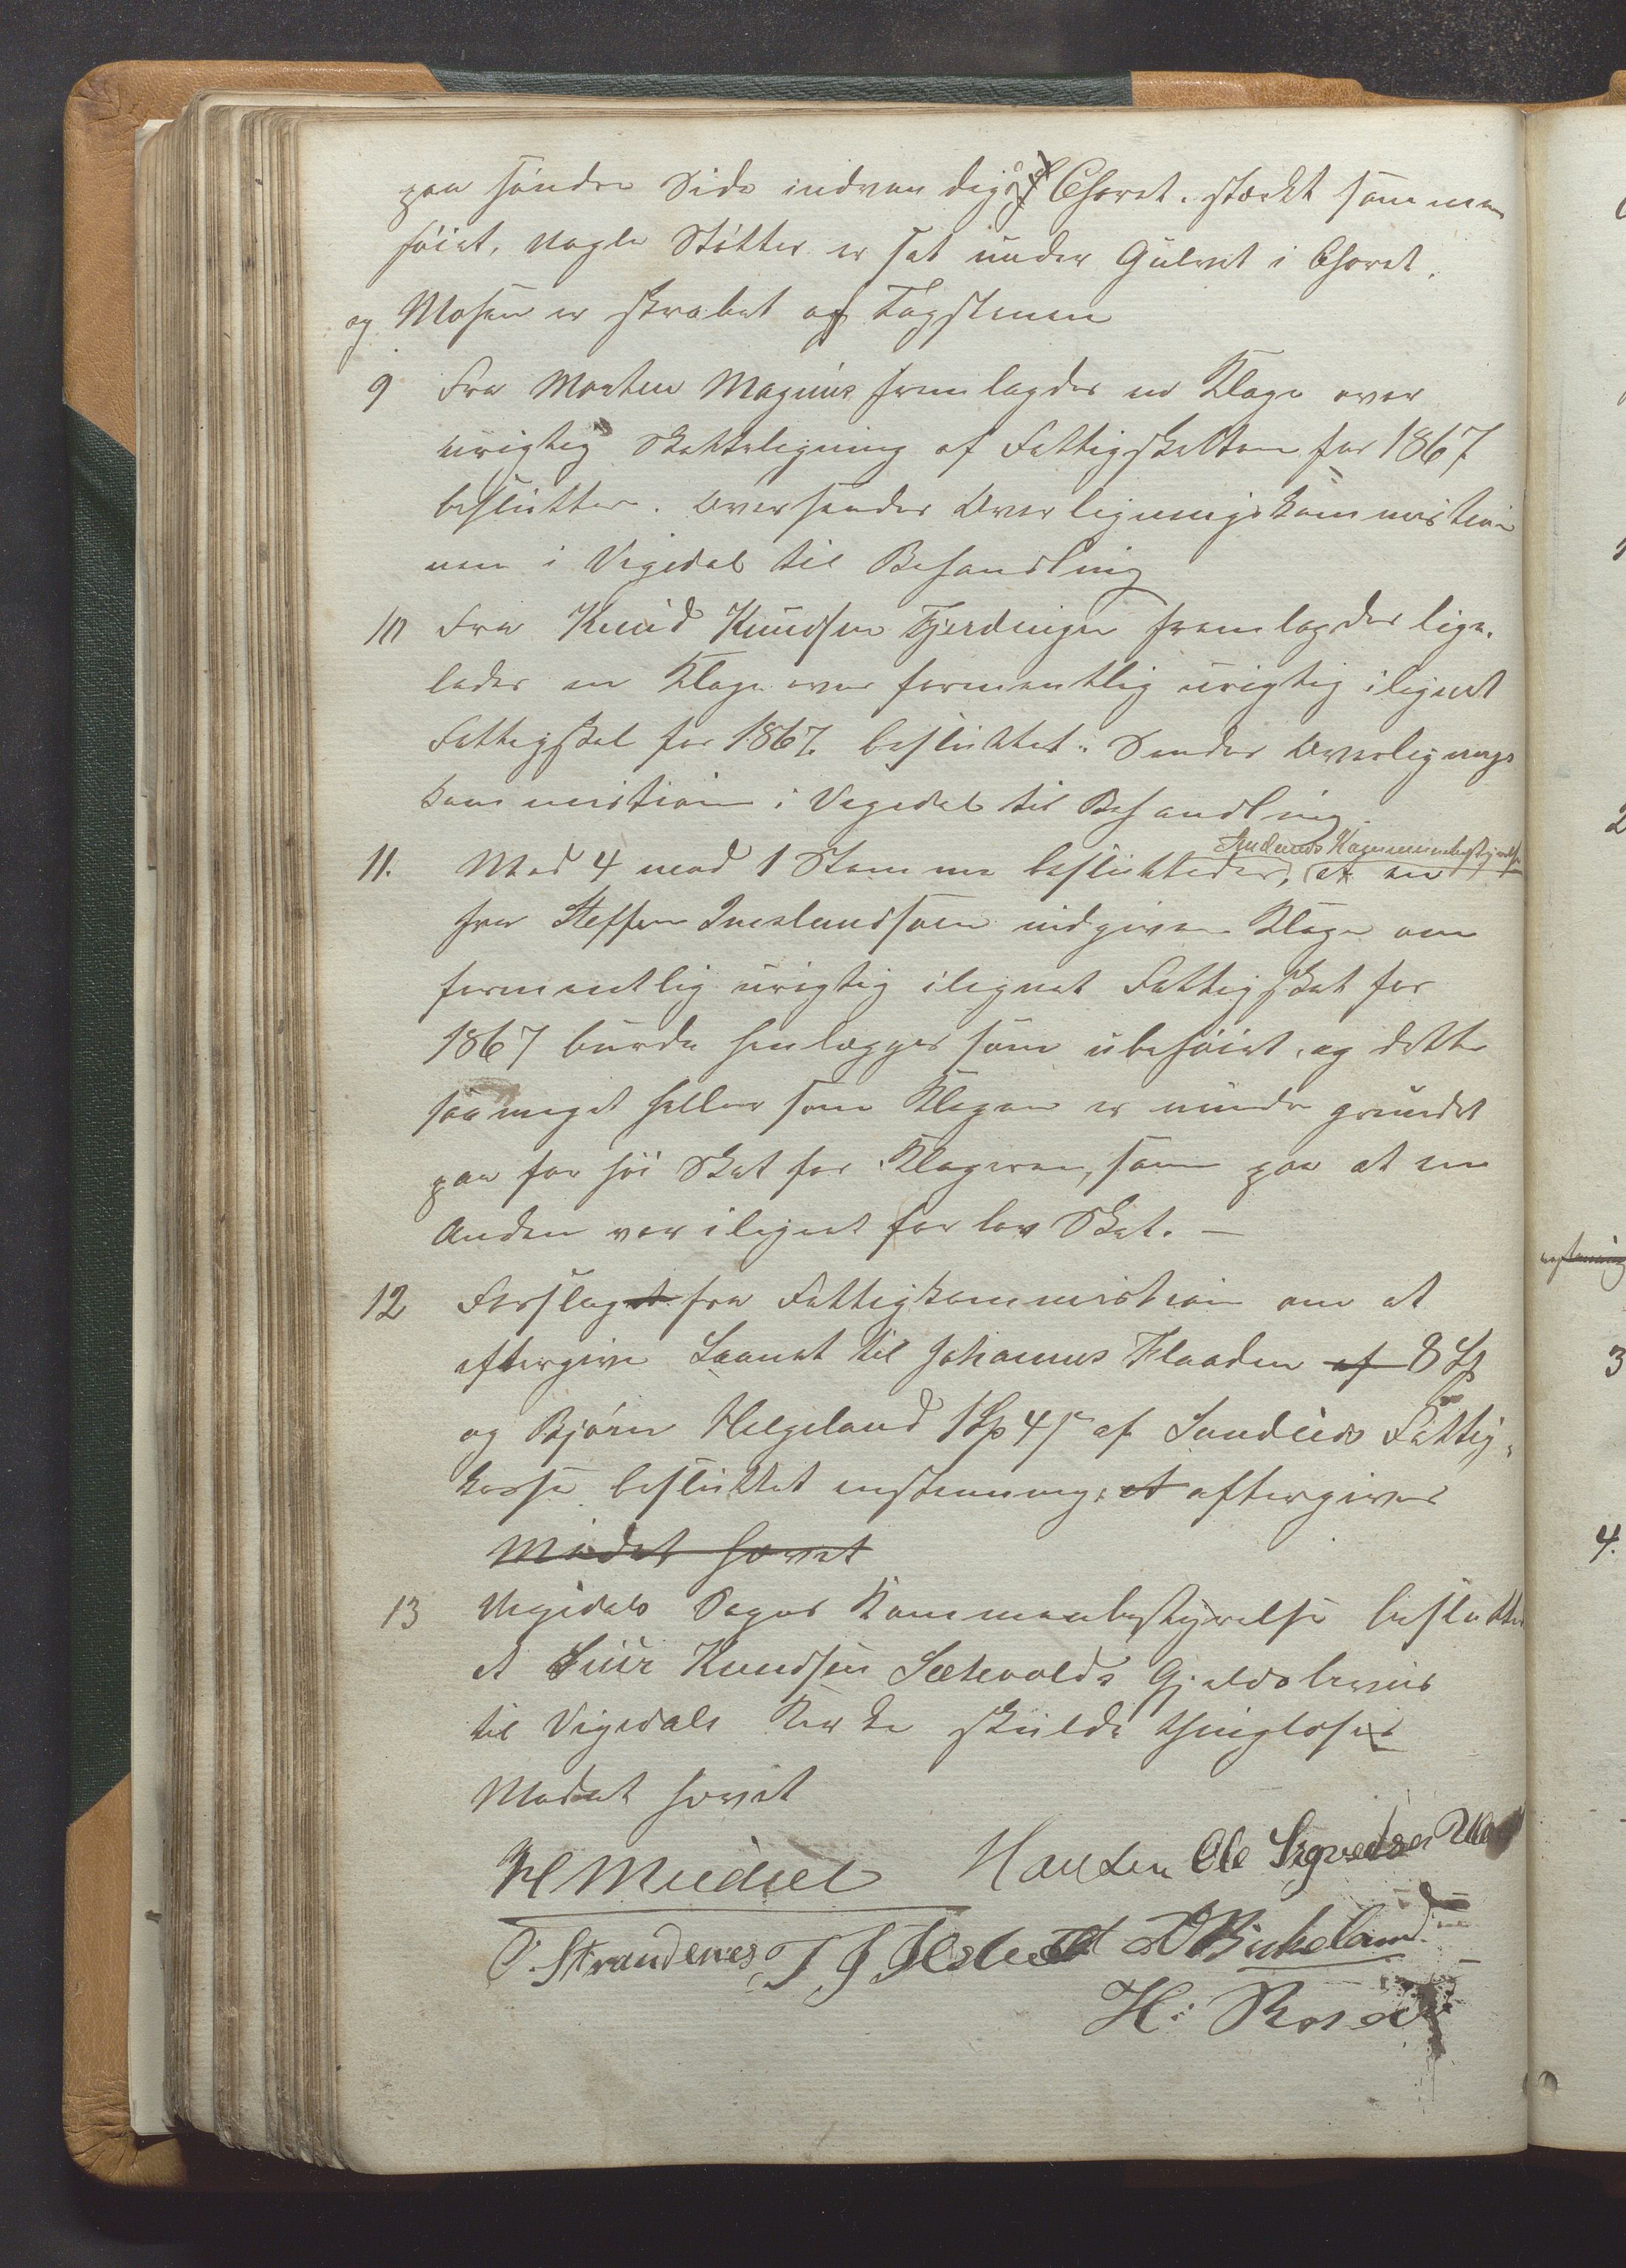 paa søndre Side indvendig af Choret. stærkt sammen
føiet, nogle Støtter er sat under Gulvet i Choret.
og Mosen er skrabet af Tagstenen
9 Fra Morten Magnus fremlagdes en Klage over
urigtig Skatteligning af Fattigskatten for 1867
besluttes. Oversendes Overligningskommistio
nen i Vigedal til Behandling
10 Fra Knud Knudsen Fjerdingen fremlagdes lige-
ledes en Klage over formentlig urigtig ilignet
Fattigskat for 1867. besluttet: Sendes Overlignings
kommistion i Vigedal til Behandling
Kommunebestyrelse
11. Med 4 mod 1 Stemme besluttedes, at en
fra Steffen indgiven Klage om
formentlig urigtig ilignet Fattigskat for
1867 burde henlægges som ubeføiet, og dette
saa meget heller som Klagen er mindre grundet
paa for høi Skat for Klageren, som paa at en
Anden var ilignet for lav Skat. —
12 Forslaget fra Fattigkommistion om at
eftergive Laanet til Johannes Flaaden af 8 Sp
og Bjørn Helgeland 1 Sp 4 af Sandeids Fattig-
kasse besluttet enstemmig, at eftergives
Mødet hævet
13 Vigedals Sogns Kommunebestyrelse besluttet
at Knudsen Gjeldsbevis
til Vigedals Kirke skulde thingløses
Mødet hævet
Hansen Ole Sigvedsen
O. Strandenes A Birkeland
H: